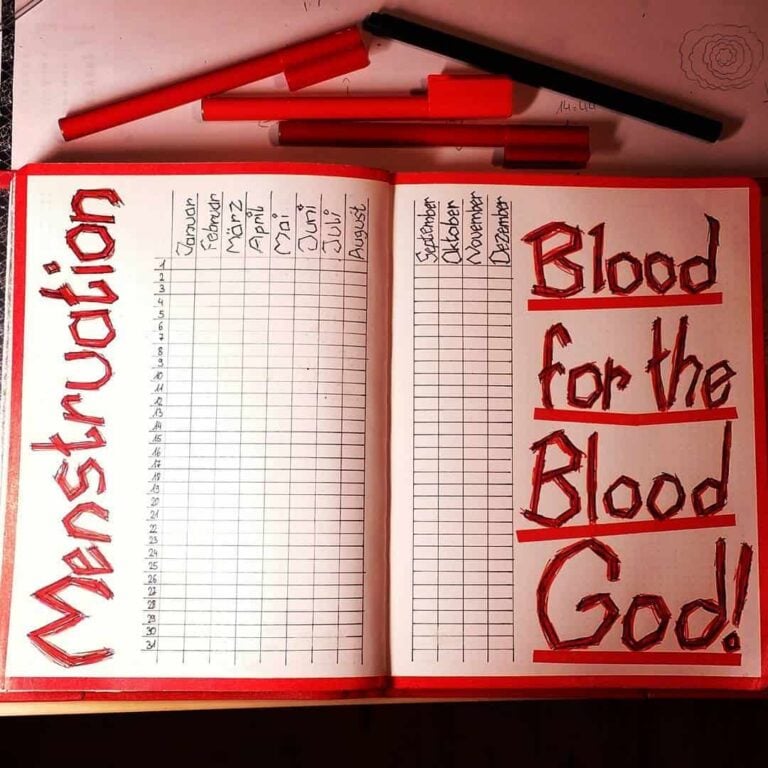 Menstruation
Januar
Februar
März
April
Mai
Juni
Juli
August
1
2
3
4
5
6
7
8
9
10
11
12
13
14
15
16
17
18
19
20
21
22
23
24
25
26
27
28
29
30
31
September
Oktober
November
Dezember
Blood
for the
Blood
God!